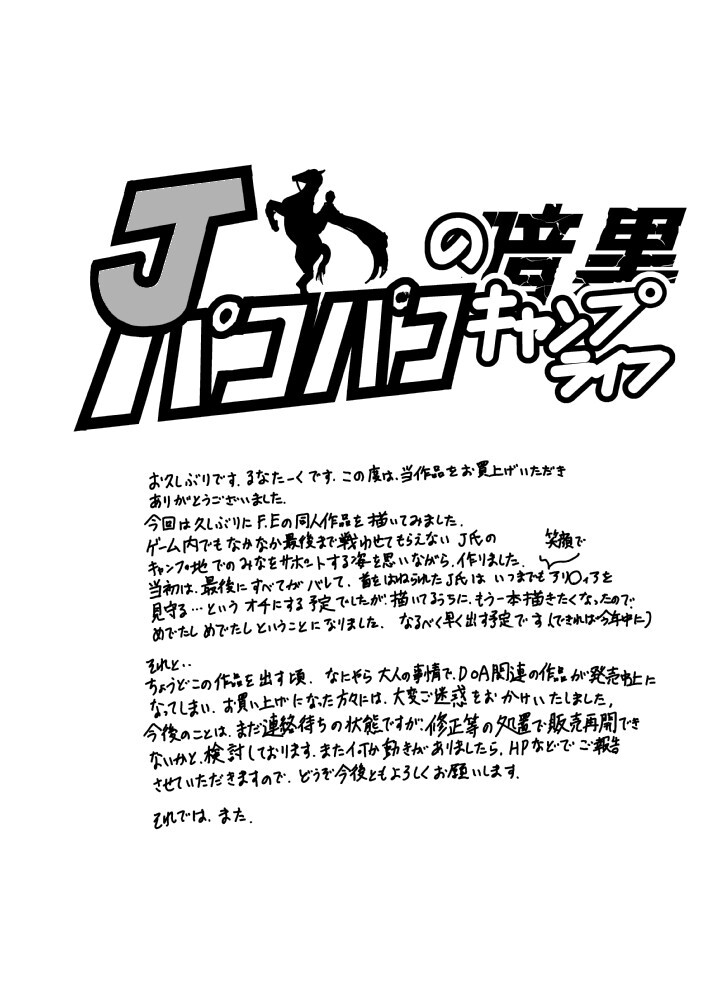 Jの暗黒
パコパコキャンプ
ライフ
お久しぶりです。るなたーくです。この度は、当作品をお買上げいただき
ありがとうございました。
今回は久しぶりにF.Eの同人作品を描いてみました。
ゲーム内でもなかなか最後まで戦わせてもらえないJ氏の
キャンプ地でのみなをサポートする姿を思いながら、作りました。
笑顔で
当初は、最後にすべてがバレて、首をはねられたJ氏はいつまでもアリ〇ィアを
見守る…というオチにする予定でしたが、描いてるうちに、もう一本描きたくなったので、
めでたしめでたしということになりました。なるべく早く出す予定です(できれば今年中に)
それと..
ちょうどこの作品を出す頃、なにやら大人の事情で、DoA関連の作品が発売中止に
なってしまい、お買い上げになった方々には、大変ご迷惑をおかけいたしました。
今後のことは、まだ連絡待ちの状態ですが、修正等の処置で販売再開でき
ないかと、検討しております。また何か動きがありましたら、HPなどでご報告
させていただきますので、どうぞ今後ともよろしくお願いします。
それでは、また。